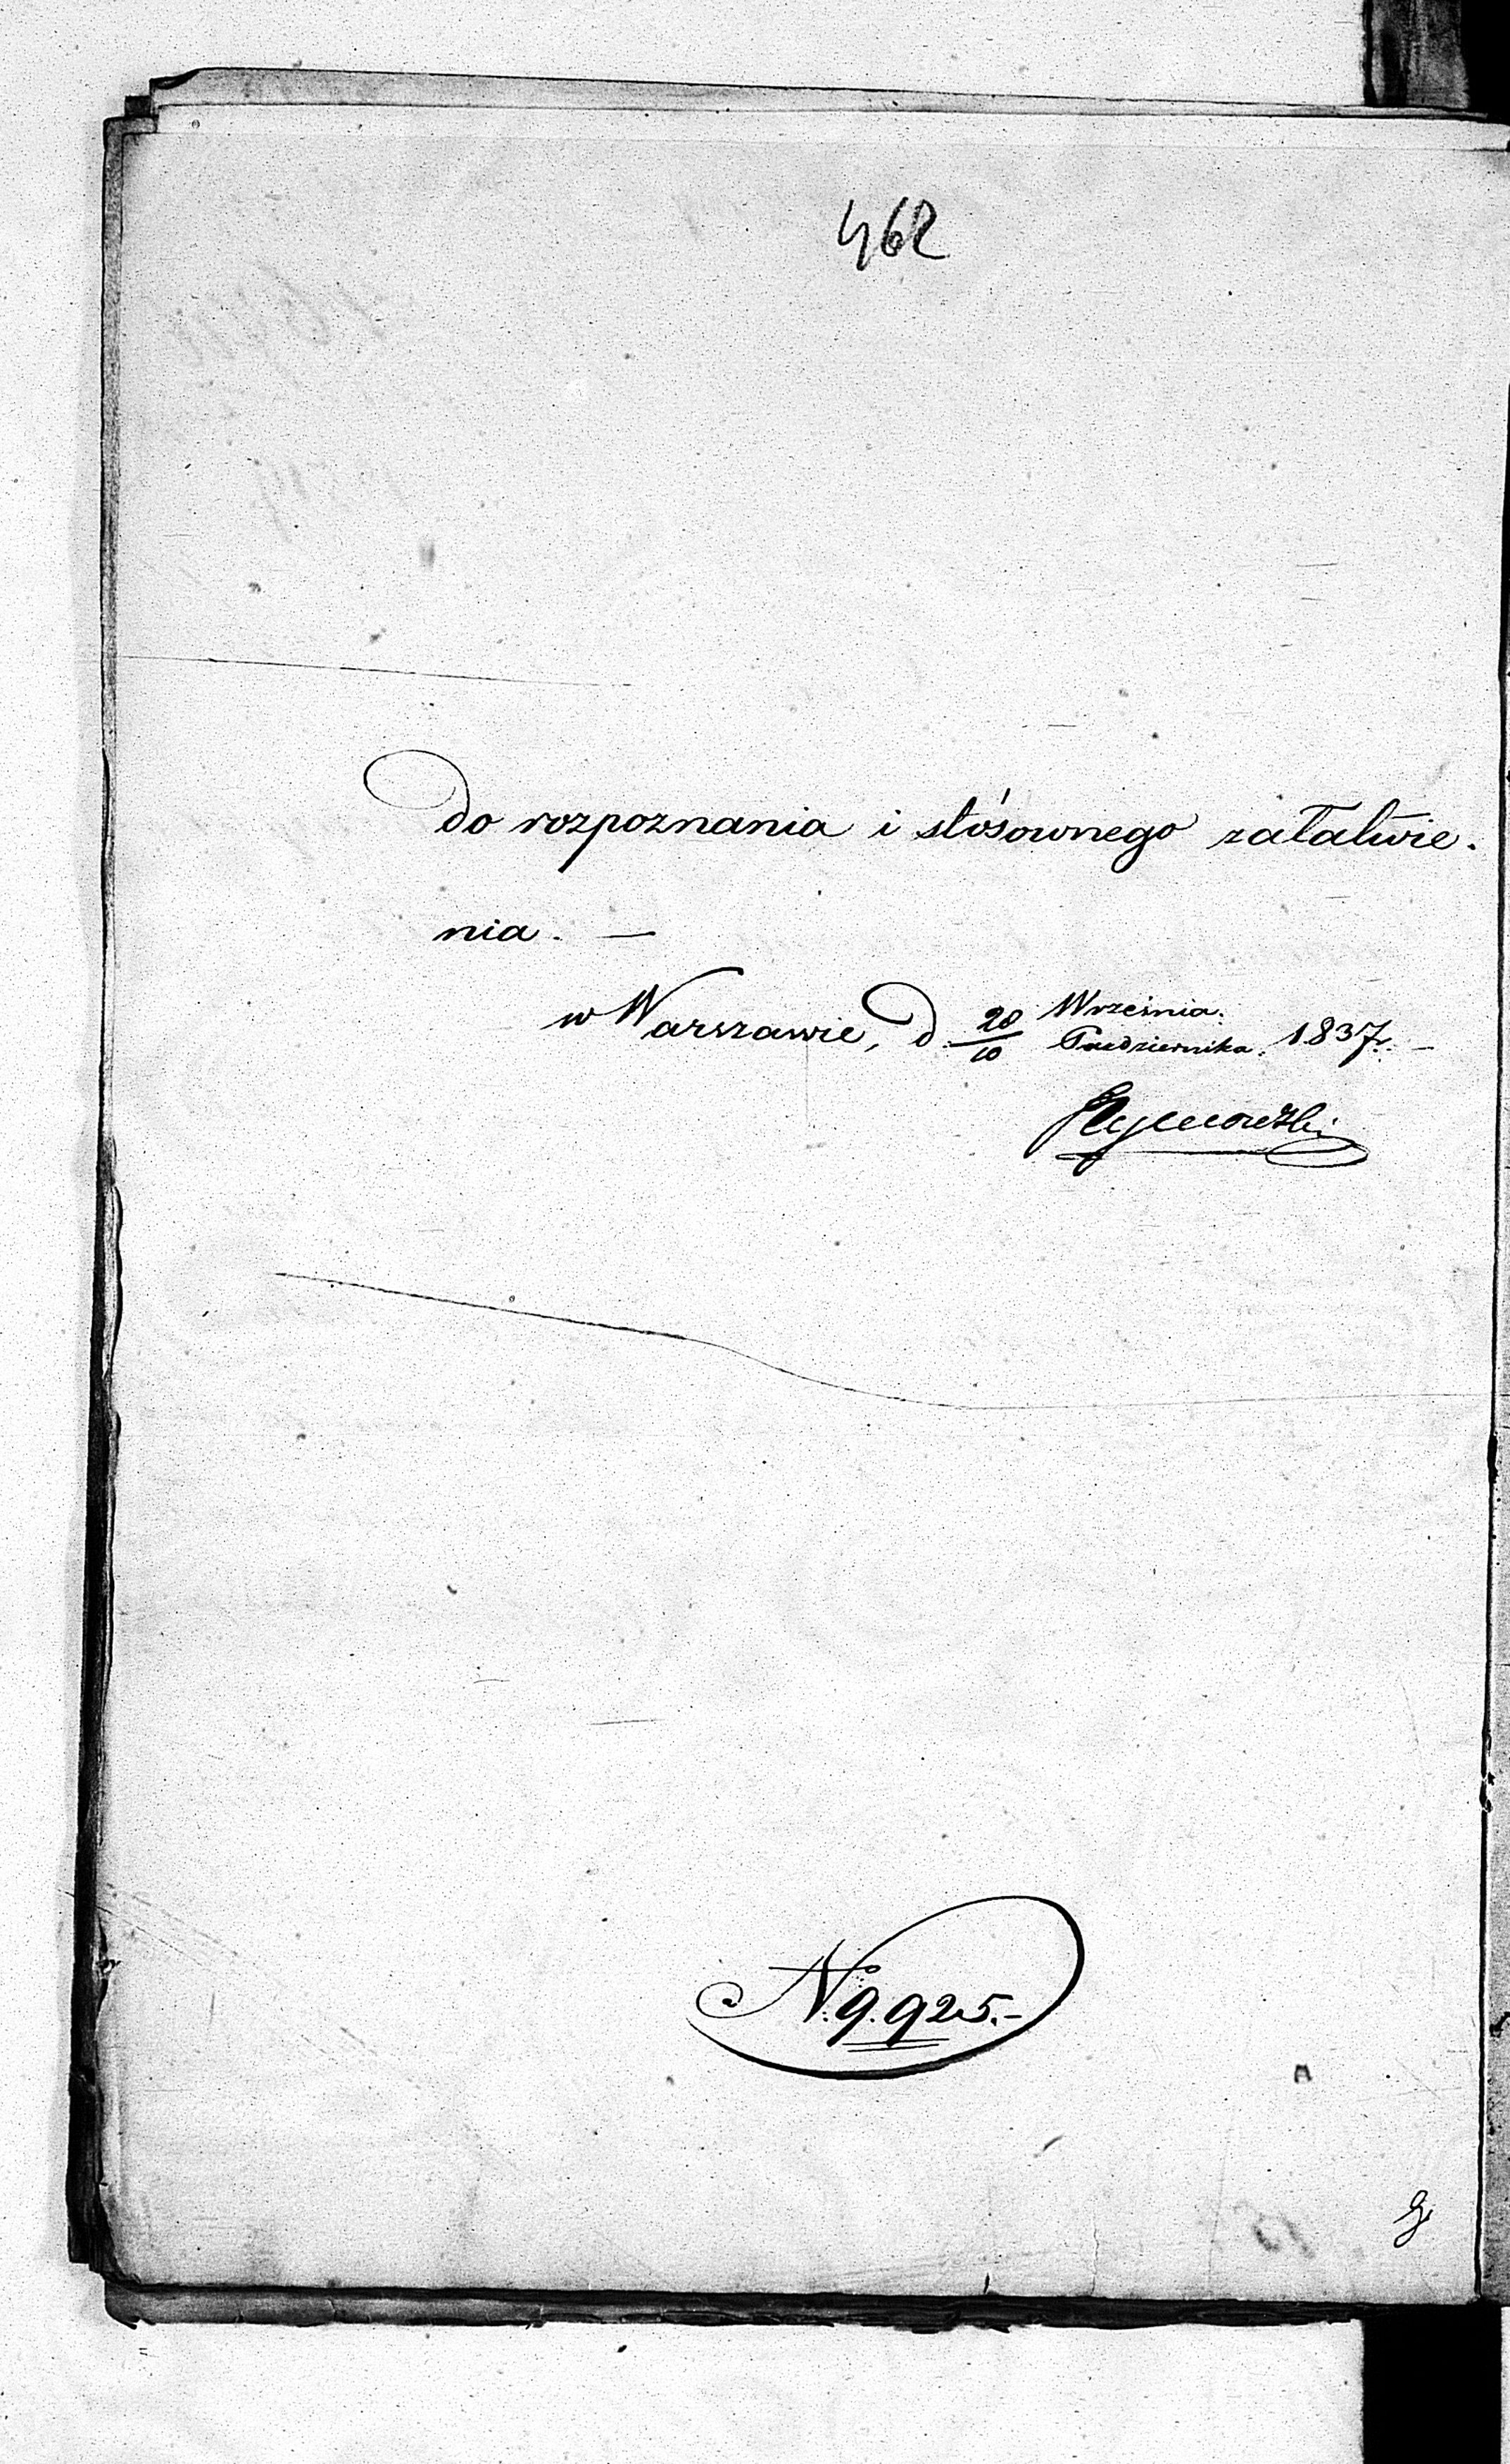 462
Do rozpoznania i stósownego załatwie-
nia. —
w Warszawie, d. 28/10 Września / Października 1837 r. —
Rymowski
N. 9.925.-